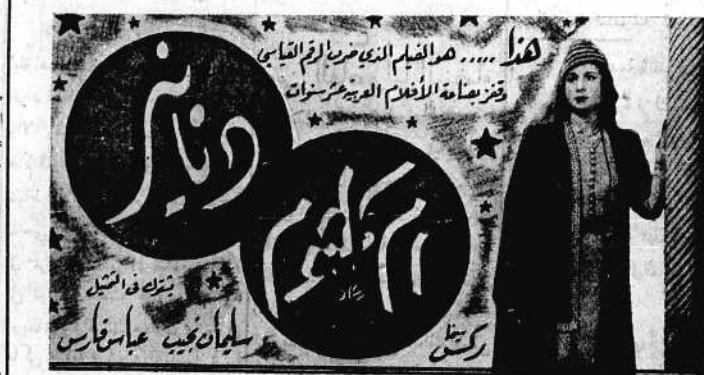 هذا ..... هو الفيلم الذي ضرب الرقم القياسي
وقفز بصناعة الأفلام العربية عشر سنوات
دنانير
ام كلثوم
يشترك فى التمثيل
سليمان نجيب عباس فارس
سينما
ركس